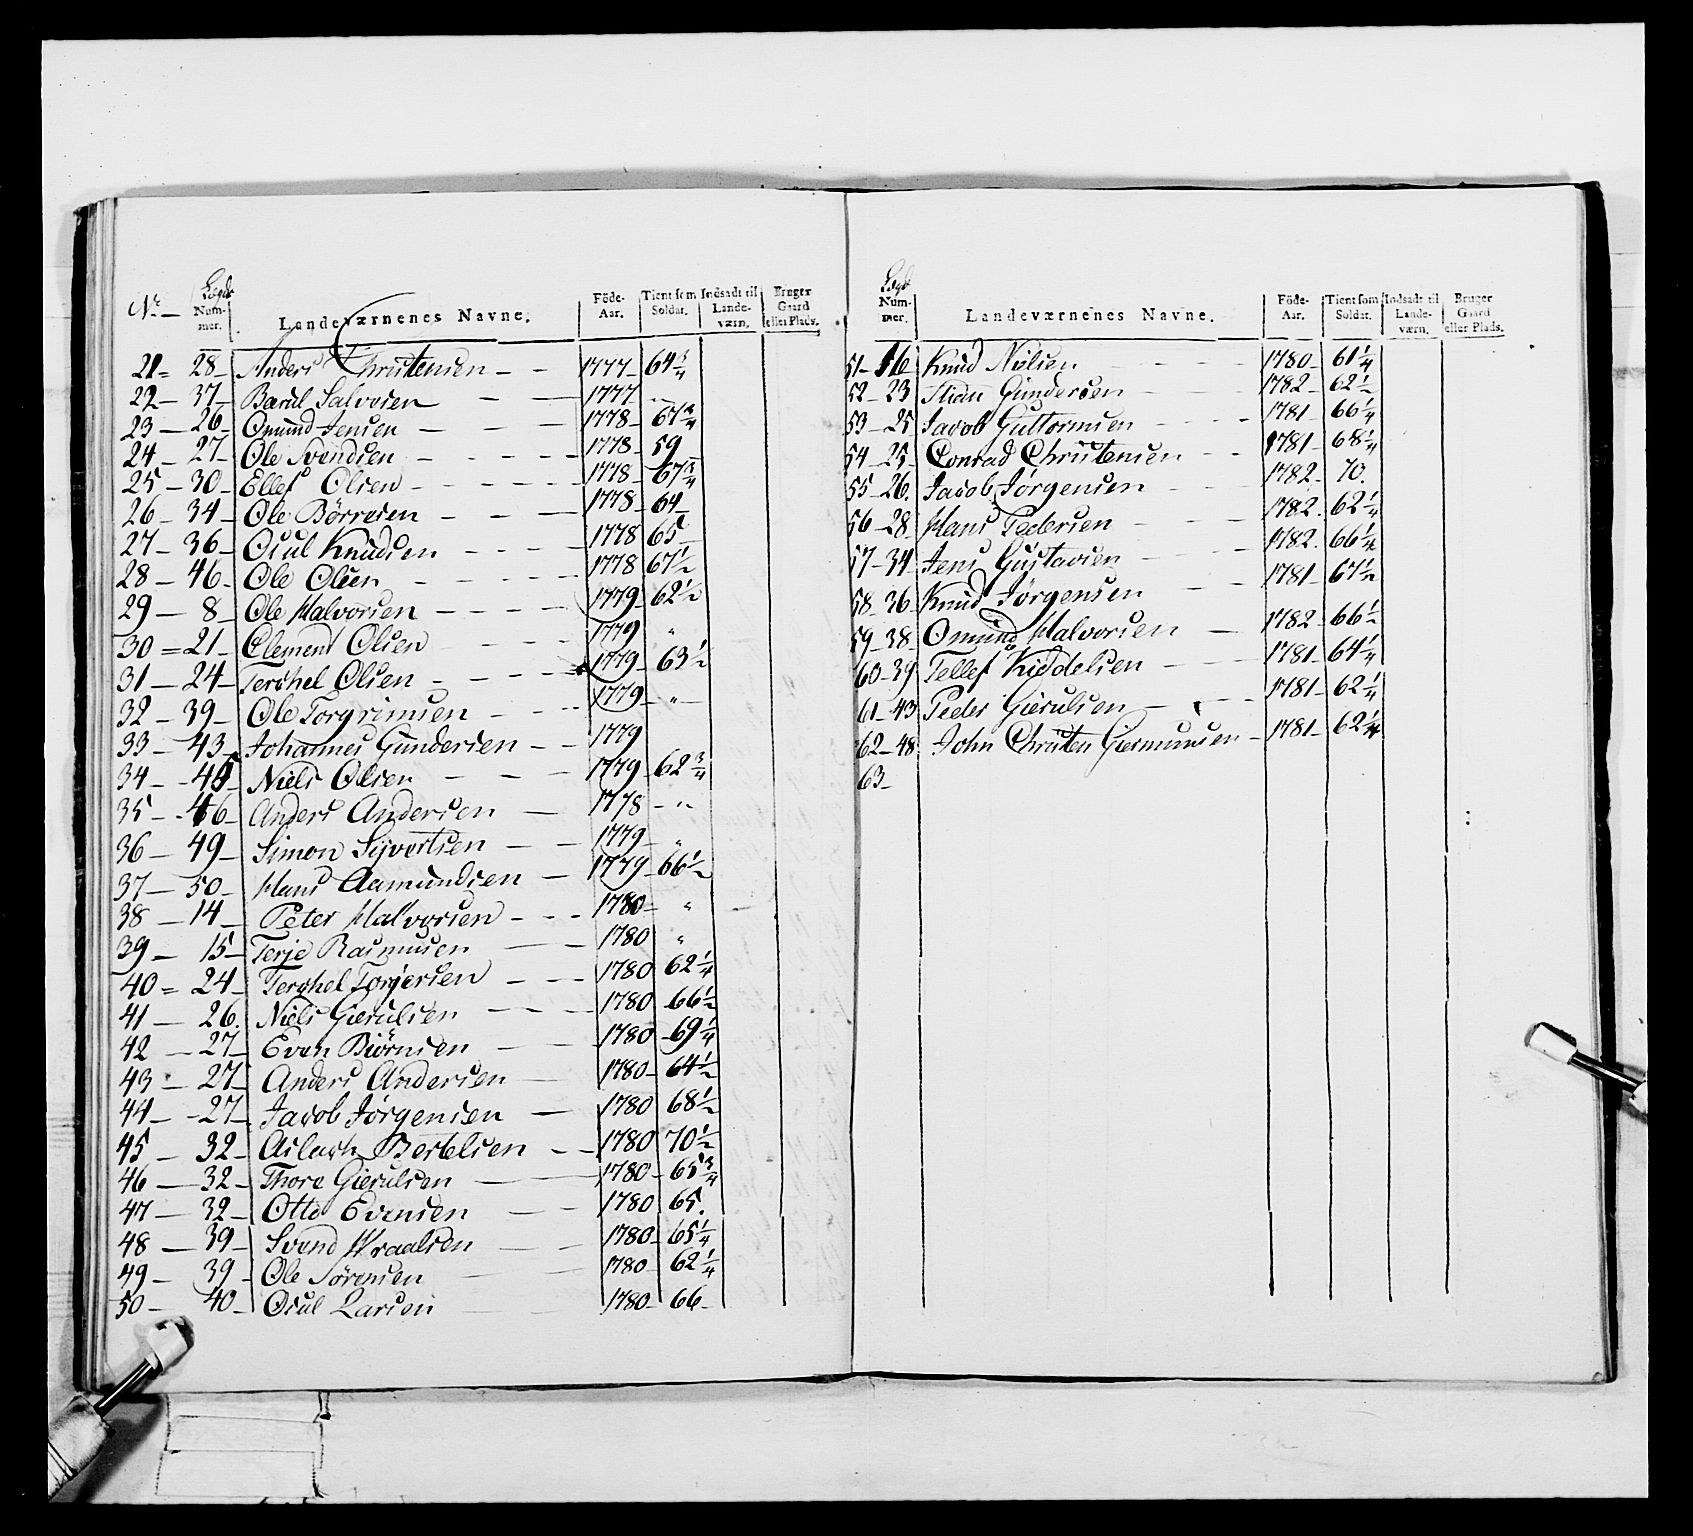 No. Lægds Nummer. Landeværnenes Navne. Föde-Aar. Tient som Soldat. Indsadt til Landeværn. Bruger Gaard eller Plads.
21 = 28 - Anders Christensen - - 1777 - 64 3/4
22 - 37 - Baarul Salvesen - - 1777 - "
23 - 26 - Omund Jensen - - - 1778 - 67 3/4
24 - 27 - Ole Svendsen - - - - 1778 - 59
25 - 30 - Ellef Olsen - - - - - 1778 - 67 3/4
26 - 34 - Ole Börresen - - - 1778 - 64
27 - 36 - Osul Knudsen - - - - 1778 65
28 - 46 - Ole Olsen - - - - - 1778 67 1/2
29 - 8 - Ole Halvorsen - - - - 1779 - 62 1/2
30 = 21 - Clement Olsen - - - 1779 "
31 - 24 - Terchel Olsen - - - - 1779 - 63 1/2
32 - 39 - Ole Torgrimsen - - - 1779 - " -
33 - 43 - Johannes Gundersen - - 1779
34 - 45 - Niels Olsen - - - 1779 - 62 3/4
35 - 46 - Anders Andersen - 1778 - "
36 - 49 - Simon Sÿvertsen - - 1779 - "
37 - 50 - Hans Aamundsen - 1779 - 66 1/2
38 - 14 - Peter Halvorsen - - - 1780 - "
39 - 15 - Terje Rasmusen - - 1780 "
40 = 24 - Terchel Torjersen - - - 1780 62 1/4
41 - 26. Niels Gierulsen - - - 1780 66 1/2
42 - 27 - Even Biörnsen - - - 1780 - 69 1/4
43 - 27 - Anders Andersen - 1780 - 64 1/2
44 - 27 - Jacob Jørgensen - - 1780 68 1/2
45 32 - Aslach Bertelsen - - 1780 70 1/2
46 - 32 - Thore Gierulsen - - 1780 - 65 3/4
47 - 32 - Otto Evensen - - 1780 65.
48 - 39 - Svend Wraalsen - - 1780 - 65 1/4
49 - 39 - Ole Sørensen - - 1780 - 62 1/4
50 - 40 - Osul Larsen - - 1780 - 66 -
Lægd Nummer. Landeværnenes Navne. Föde-Aar. Tient som Soldat. Indsadt til Landeværn. Bruger Gaard eller Plads.
51 - 16 Knud Nielsen - - - - 1780 - 61 1/4
52 - 23 Stian Gundersen - - - 1782 - 62 1/2
53 - 25 Jacob Guttormsen - - - - 1781 - 66 1/4
54 - 25 - Conrad Christensen - - 1781 - 68 1/4
55 - 26. Jacob Jørgensen - - - 1782 - 70.
56 - 28. Hans Pedersen - - - 1782. 62 1/4
57 - 34 - Jens Gustavsen - - - 1782. 66 1/4
58 - 36 - Knud Jørgensen - - 1781 - 67 1/2
59 - 38 - Omund Halvorsen - 1782 - 66 1/2
60 - 39 Tellef Kiddelsen - - - 1781 - 64 1/4
61 - 43 Peder Gierulsen - - - 1781 - 62 1/4
62 - 48 John Christen Giermundsen - 1781 - 62 1/4
63 -